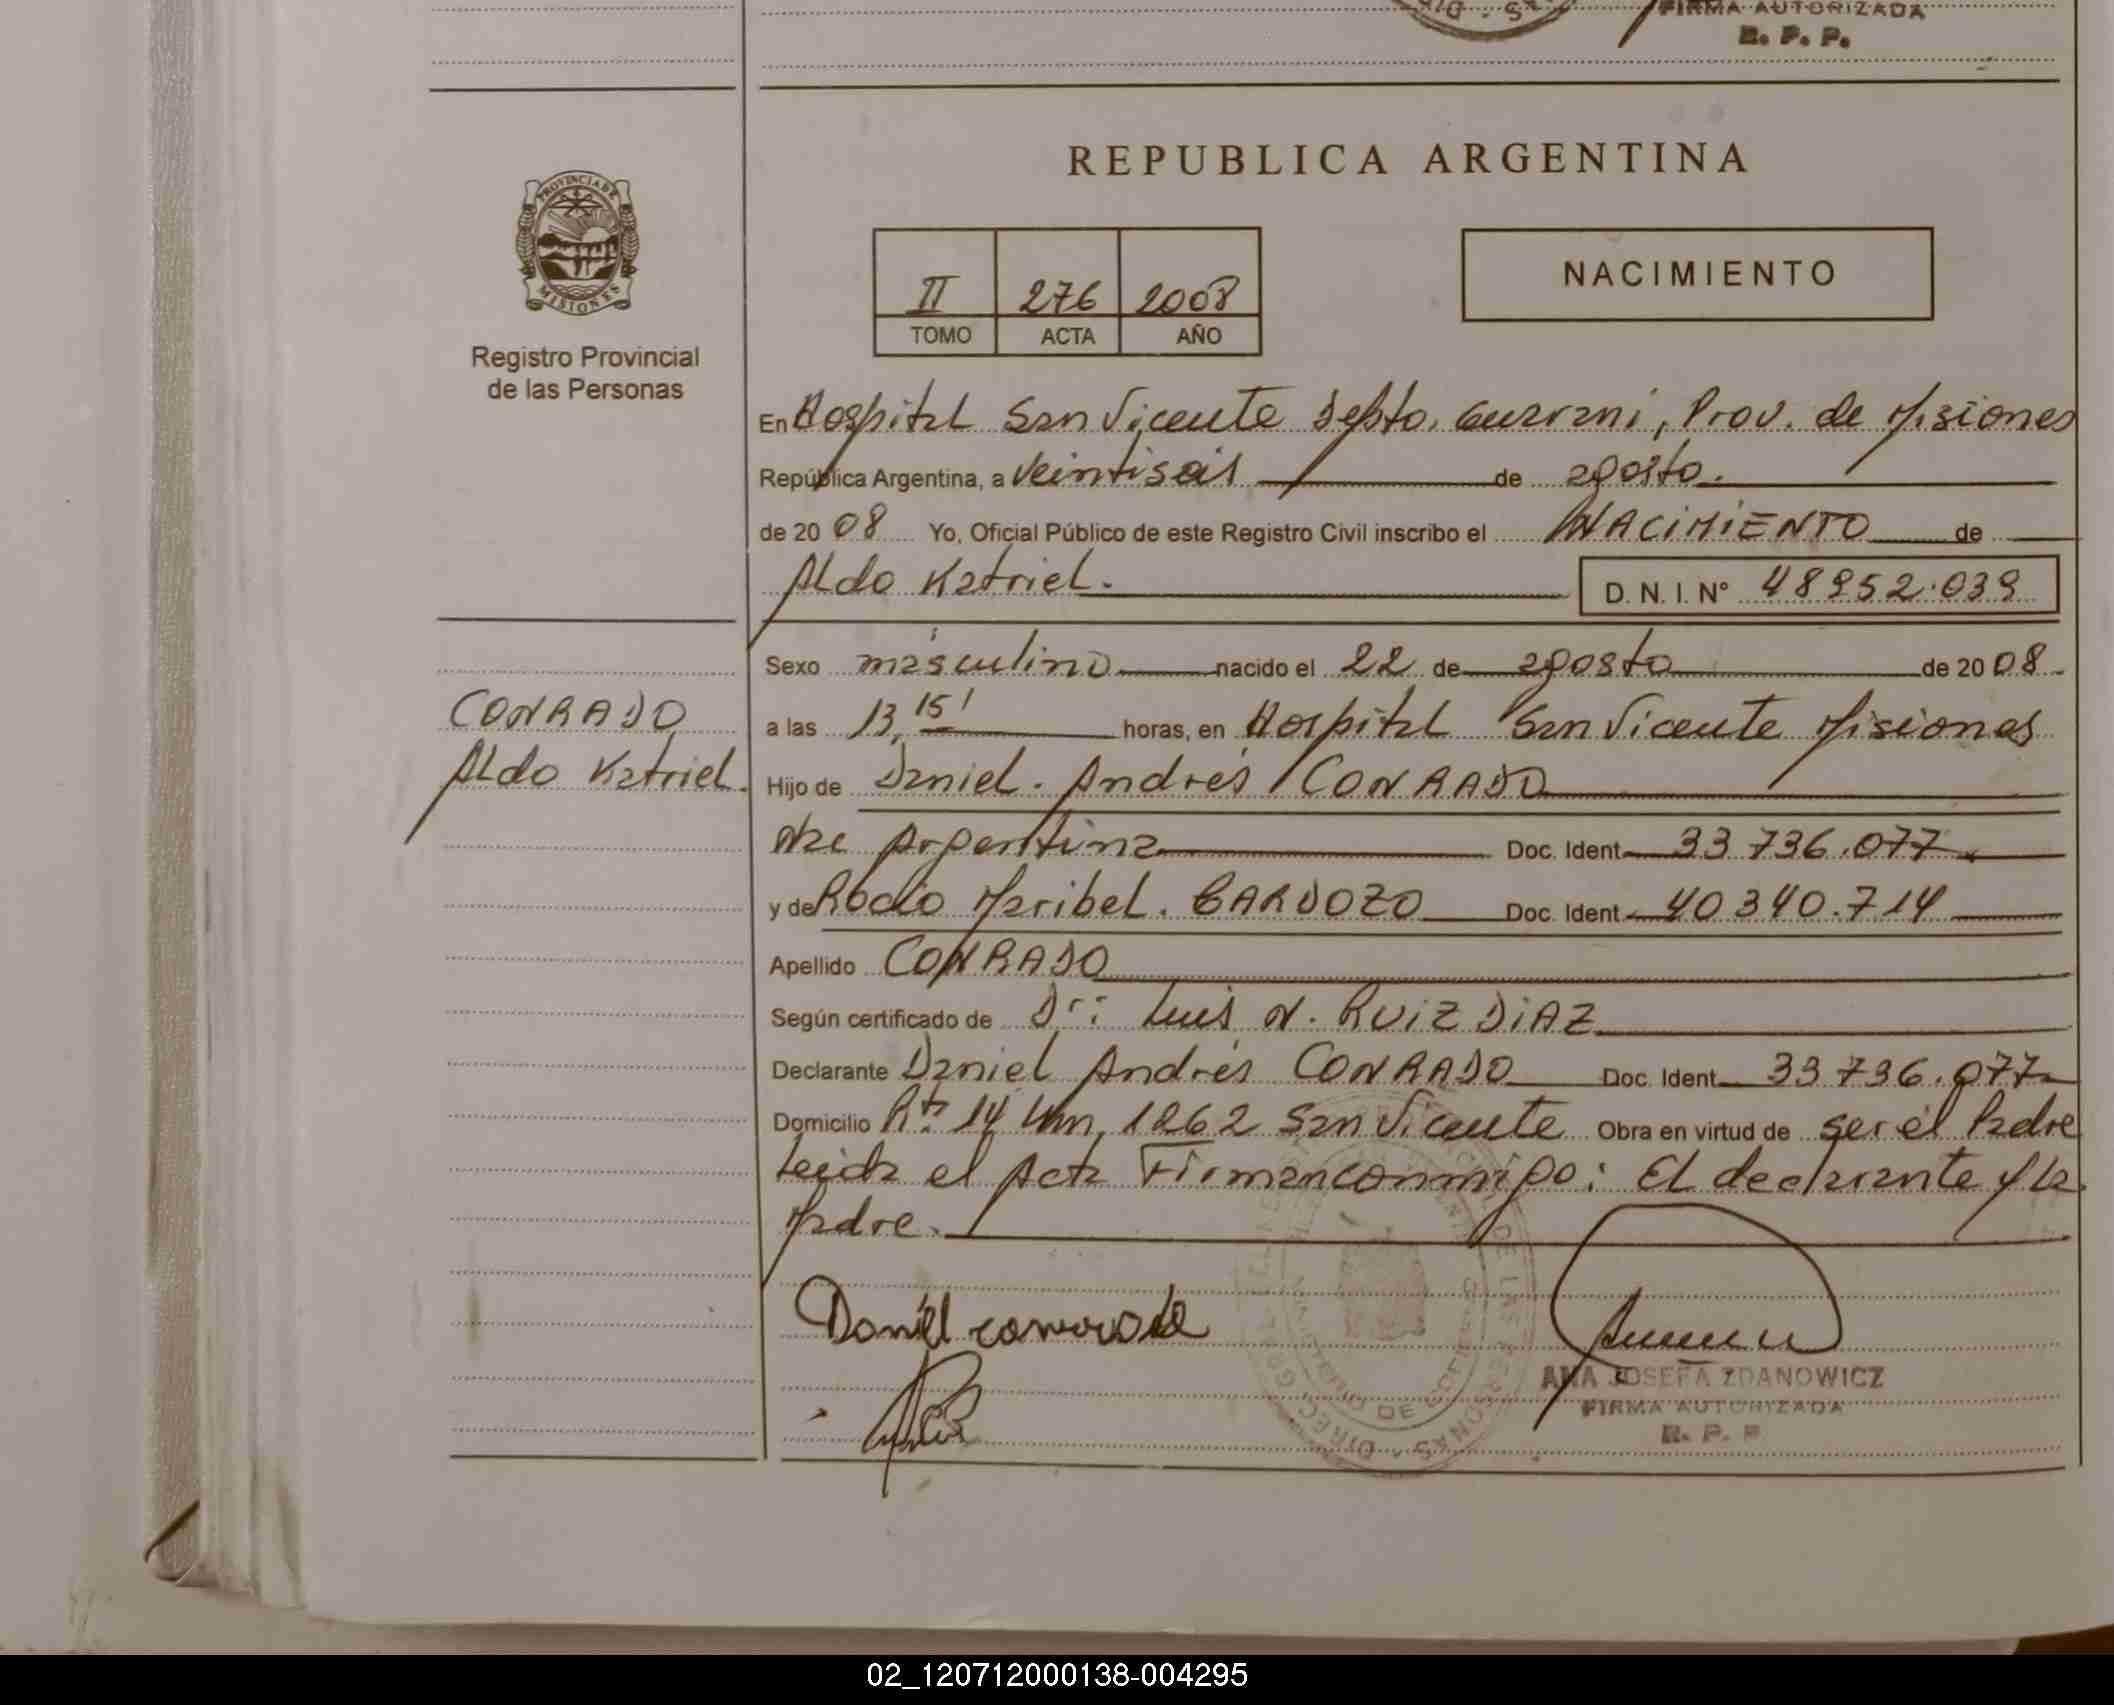 FIRMA AUTORIZADA
R. P. P.
REPUBLICA ARGENTINA
PROVINCIA DE
MISIONES
II 276 2008
TOMO ACTA AÑO
NACIMIENTO
Registro Provincial
de las Personas
En Hospital San Vicente Depto. Guarani, Prov. de Misiones
República Argentina, a veintiseis de agosto.
de 2008 Yo, Oficial Público de este Registro Civil inscribo el NACIMIENTO de
Aldo Katriel. D. N. I. N° 48952.039
Sexo masculino nacido el 22 de agosto de 2008.
CONRADO
Aldo Katriel.
a las 13,15' horas, en Hospital San Vicente Misiones
Hijo de Daniel. Andrés CONRADO
Nac Argentina Doc. Ident. 33 736.077
y de Rocío Maribel. CARDOZO Doc. Ident. 40 340.714
Apellido CONRADO
Según certificado de Dr: Luis N. RUIZ DIAZ
Declarante Daniel Andrés CONRADO Doc. Ident. 33 736.077
Domicilio Rta. 14 Km, 1262 San Vicente Obra en virtud de ser el Padre
Leida el Acta Firman conmigo: El declarante y la
Madre.
Daniel conrado
ANA JOSEFA ZDANOWICZ
FIRMA AUTORIZADA
R. P. P
02_120712000138-004295